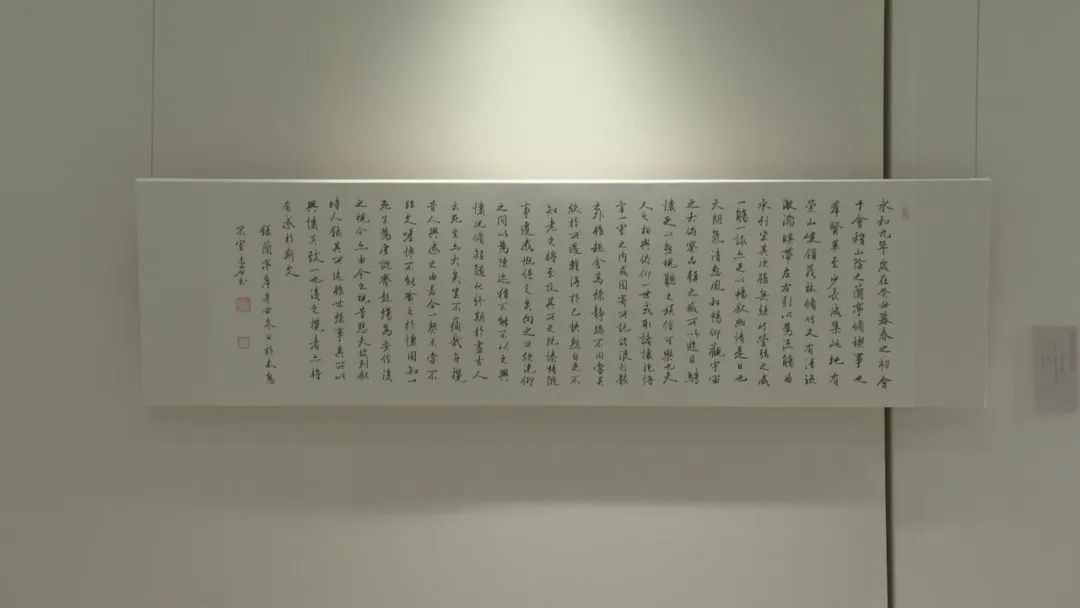 永和九年歲在癸丑暮春之初會
于會稽山陰之蘭亭脩禊事也
羣賢畢至少長咸集此地有
崇山峻領茂林脩竹又有清流
激湍暎帶左右引以為流觴曲
水列坐其次雖無絲竹管弦之盛
一觴一詠亦足以暢敘幽情是日也
天朗氣清惠風和暢仰觀宇宙
之大俯察品類之盛所以遊目騁
懷足以極視聽之娛信可樂也夫
人之相與俯仰一世或取諸懷抱悟
言一室之內或因寄所託放浪形骸
之外雖趣舍萬殊靜躁不同當其
欣於所遇暫得於己快然自足不
知老之將至及其所之既惓情隨
事遷感慨係之矣向之所欣俛仰
之間以為陳迹猶不能不以之興
懷況脩短隨化終期於盡古人
云死生亦大矣豈不痛哉每攬
昔人興感之由若合一契未嘗不
臨文嗟悼不能喻之於懷固知一
死生為虛誕齊彭殤為妄作後
之視今亦由今之視昔悲夫故列敘
時人錄其所述雖世殊事異所以
興懷其致一也後之攬者亦將
有感於斯文
錄蘭亭序辛丑冬日於木鳥